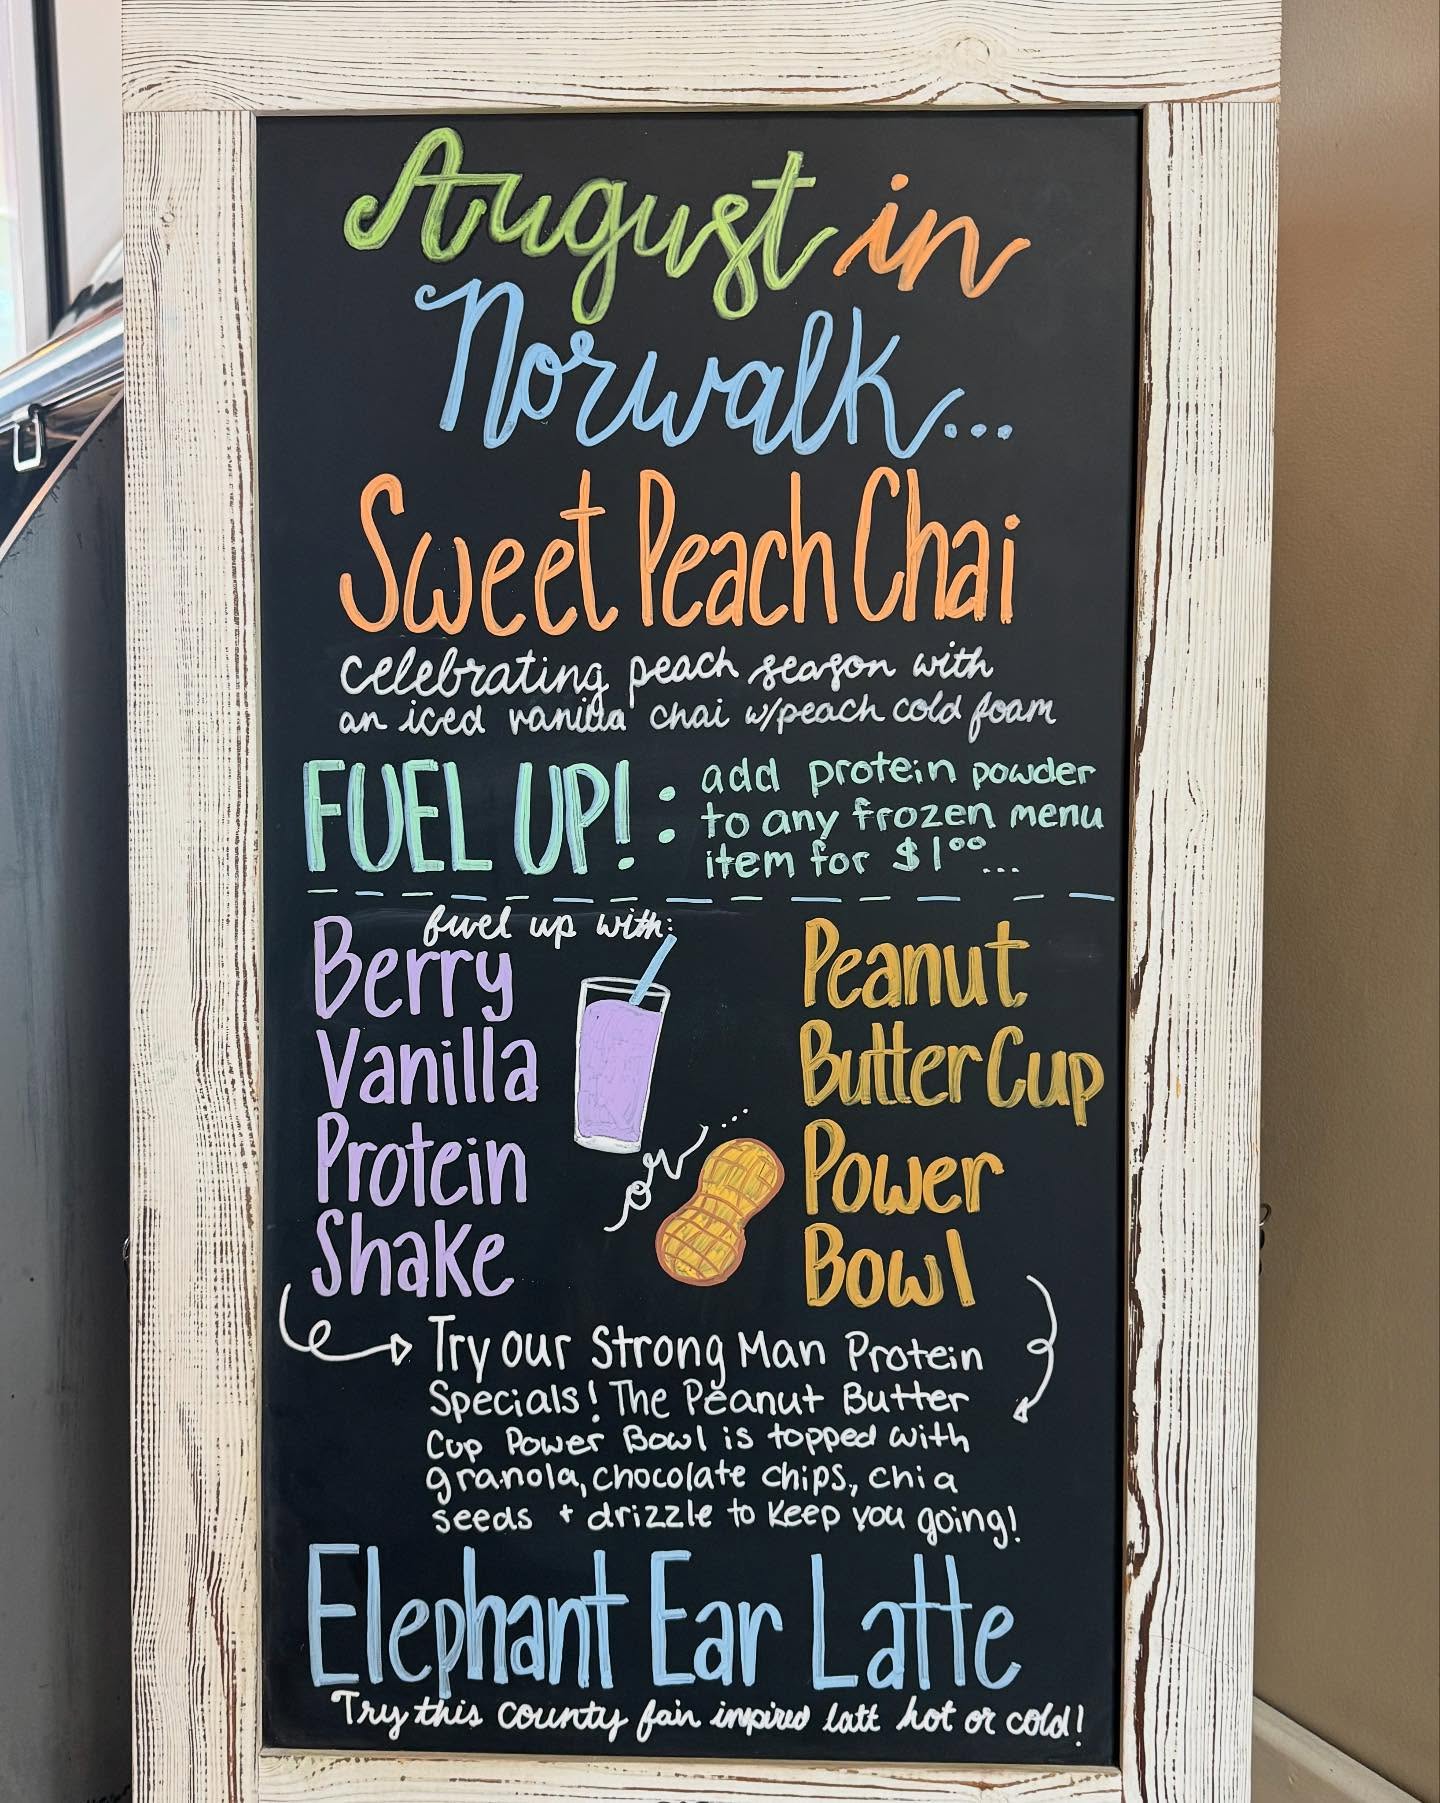 August in
Norwalk...
Sweet Peach Chai
celebrating peach season with
an iced vanilla chai w/peach cold foam
FUEL UP! : add protein powder
to any frozen menu
item for $1.00...
fuel up with:
Berry
Vanilla
Protein
Shake
or...
Peanut
Butter Cup
Power
Bowl
Try our Strong Man Protein
Specials! The Peanut Butter
Cup Power Bowl is topped with
granola, chocolate chips, chia
seeds + drizzle to keep you going!
Elephant Ear Latte
Try this county fair inspired latt hot or cold!